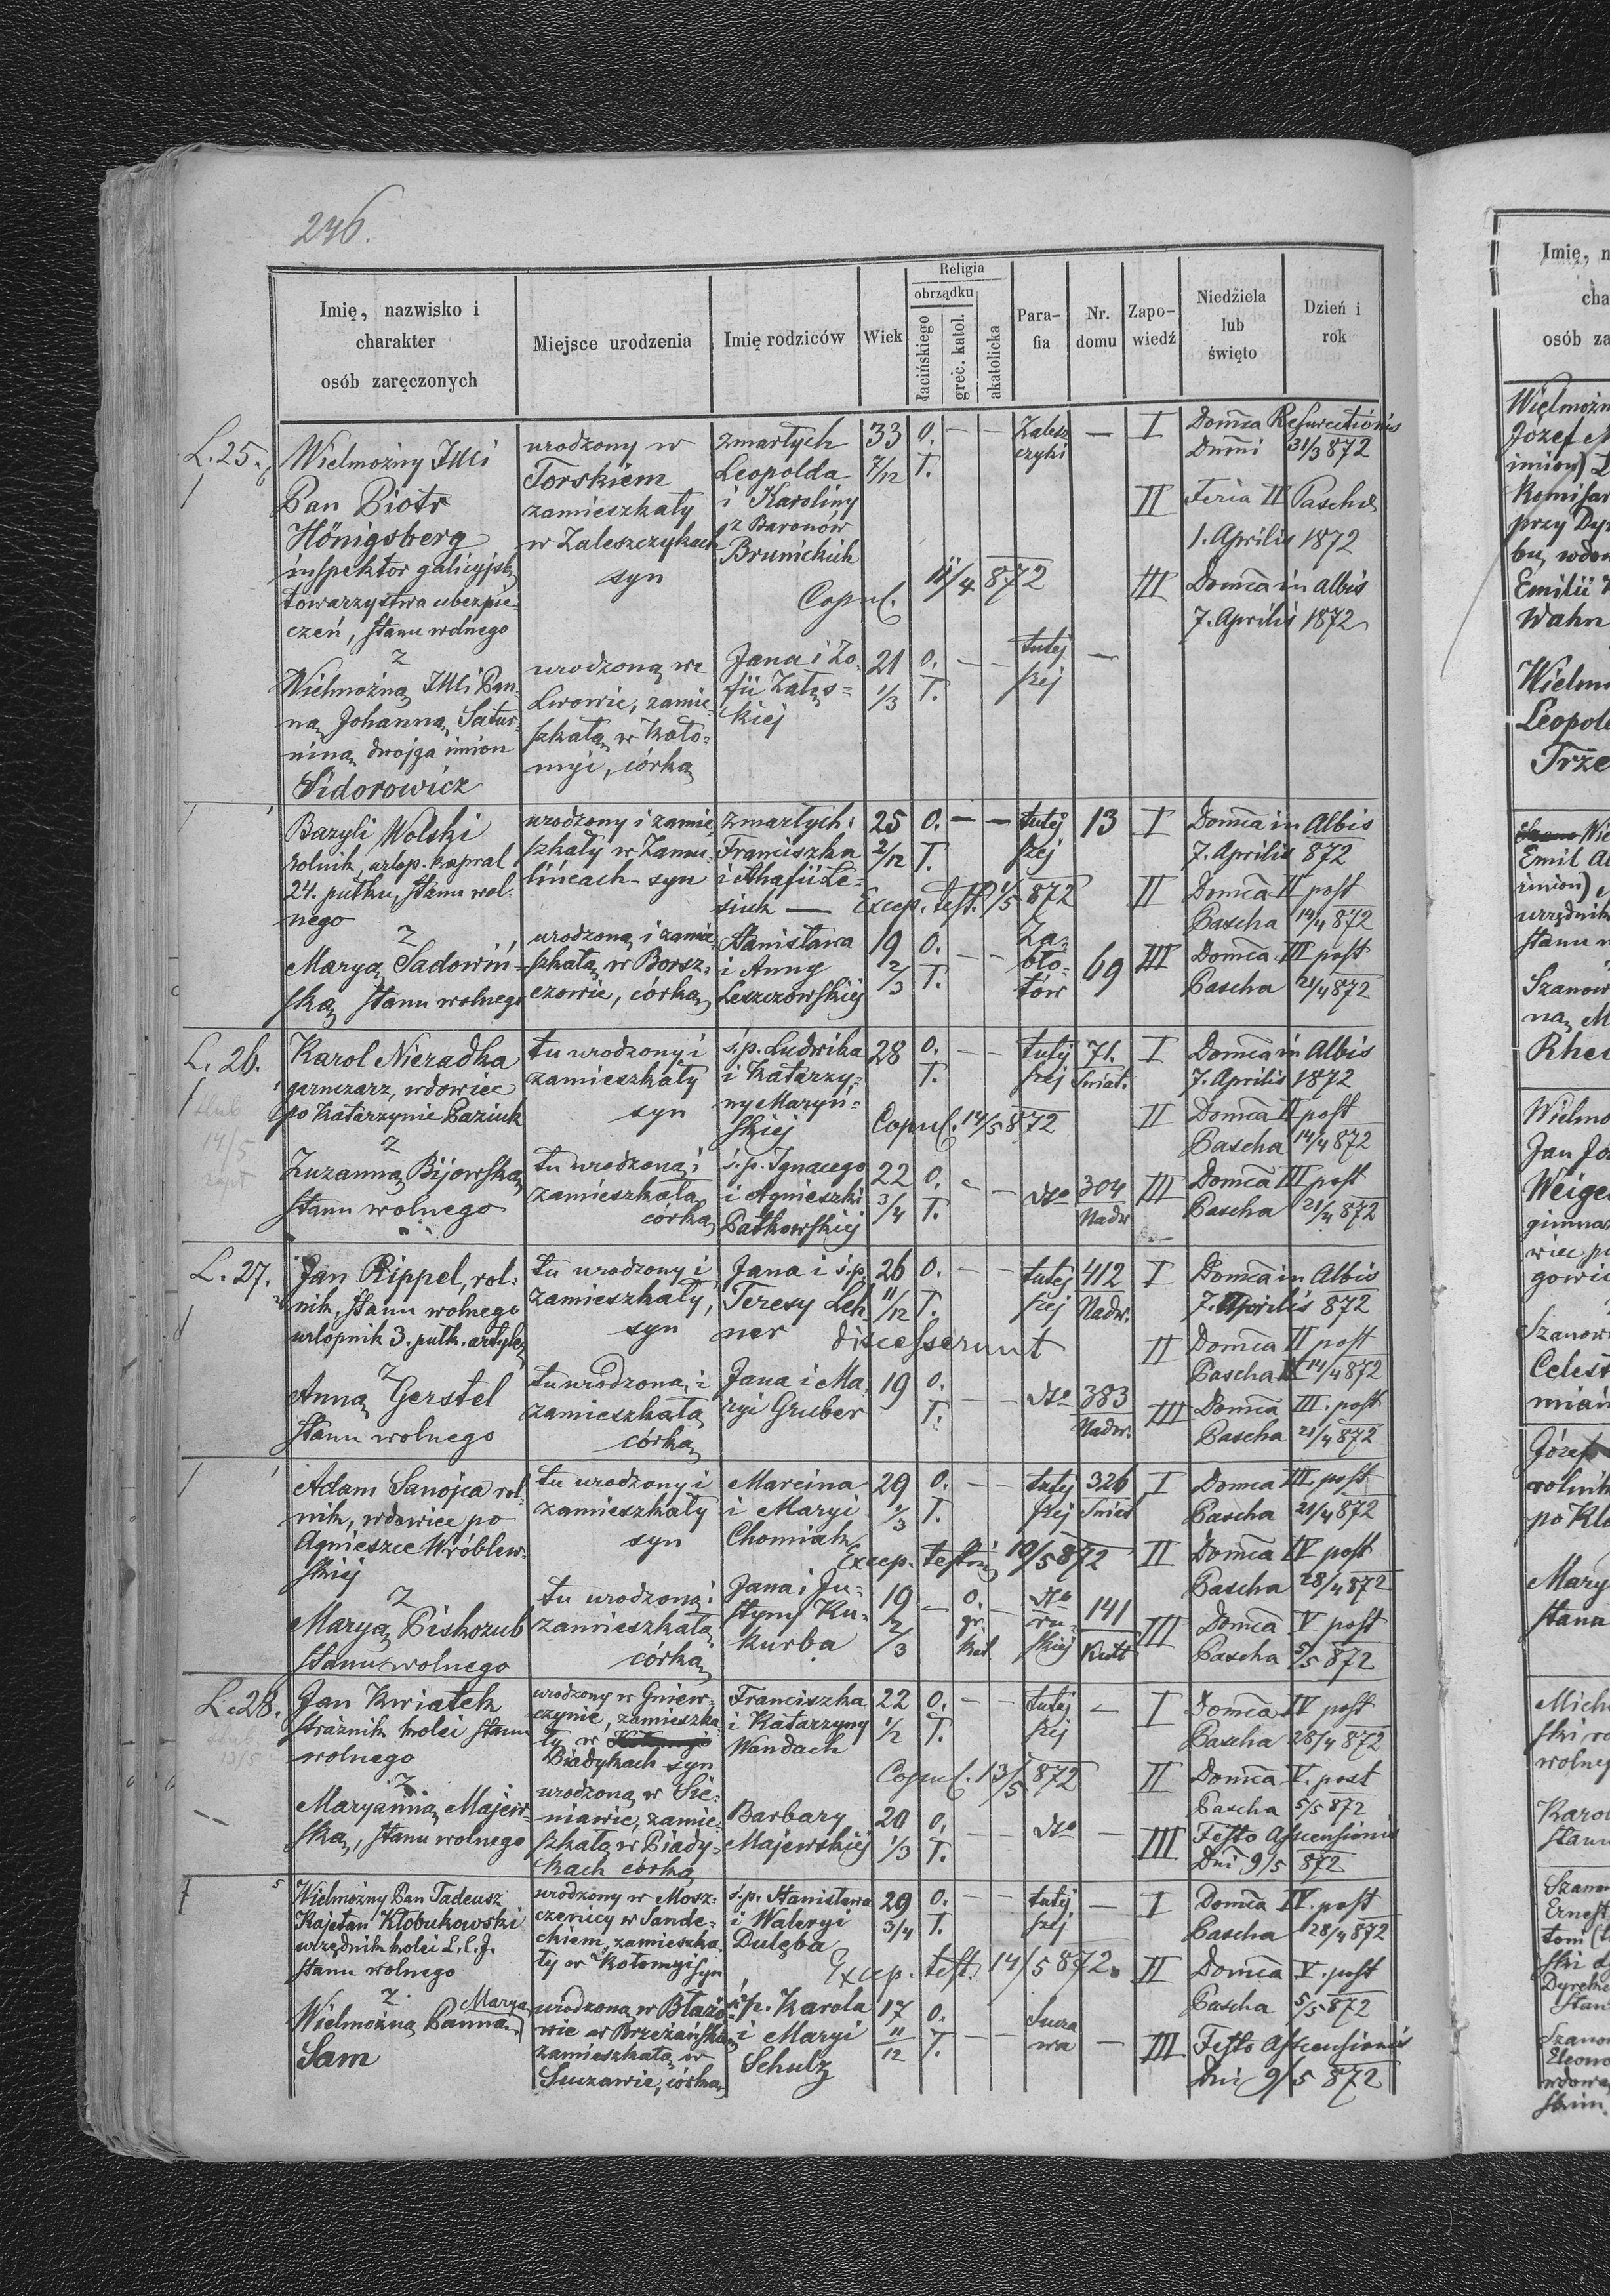 246.
Imię, nazwisko i charakter osób zaręczonych
Miejsce urodzenia
Imię rodziców
Wiek
Religia
obrządku
łacińskiego
greć. katol.
akatolicka
Para-
fia
Nr.
domu
Zapo-
wiedź
Niedziela
lub
święto
Dzień i
rok
L. 25.
Wielmożny JMci
Pan Piotr
Hönigsberg
inspektor galicyjsk.
towarzystwa ubezpie-
czeń, stanu wolnego
z
Wielmożną JMci Pan-
ną Johanną Satur-
niną dwojga imion
Sidorowicz
urodzony w
Torskiem
zamieszkały
w Zaleszczykach
syn
urodzoną we
Lwowie, zamie-
szkałą w Koło-
myi, córką
zmarłych
Leopolda
i Karoliny
z Baronów
Brunickich
Copul. 11/4 872
Jana i Zo-
fii Załęs-
kiej
33 7/12
O. T. — —
Zalesz
czyki
—
21 1/3
O. T. — —
tutej
szej
—
I Domca Resurectionis
Dnni 31/3 872
II Feria II Pascha
1. Aprilis 1872
III Domca in Albis
7. Aprilis 1872
Bazyli Wolski
rolnik, urlop. kapral
24. pułku, stanu wol-
nego
z
Maryą Sadowiń-
ską stanu wolnego
urodzony i zamie
szkały w Zamu-
lińcach - syn
urodzoną i zamie-
szkałą w Borsz-
czowie, córką
zmarłych:
Franciszka
i Anafii Łe-
siuk —
Excep. test. 1/5 872
Stanisława
i Anny
Leszczowskiej
25 2/12
O. T. — —
tutej
szej
13
19 2/3
O. T. — —
Za-
bło-
tów
69
I Domca in Albis
7. Aprilis 872
II Domca II post
Pascha 14/4 872
III Domca III post
Pascha 21/4 872
L. 26.
ślub
14/5
Karol Nieradka
garnczarz, wdowiec
po Katarzynie Paziuk
z
Zuzanną Bijowską
stanu wolnego
tu urodzony i
zamieszkały
syn
tu urodzoną i
zamieszkałą
córką
ś.p. Ludwika
i Katarzy-
ny Maryń-
skiej
Copul. 14/5 872
ś.p. Ignacego
i Agnieszki
Patkowskiej
28
O. T. — —
tutej
szej
71.
Śniat.
22 3/4
O. T. - —
dto
304
Nadw
I Domca in Albis
7. Aprilis 1872
II Domca II post
Pascha 14/4 872
III Domca III post
Pascha 21/4 872
L. 27.
Jan Rippel, rol-
nik, stanu wolnego
urlopnik 3. pułk. artyler
z
Anną Gerstel
stanu wolnego
tu urodzony i
zamieszkały,
syn
tu urodzoną i
zamieszkałą
córką
Jana i ś.p.
Teresy Leh
ner
discesserunt
Jana i Ma-
ryi Gruber
26 11/12
O. T. — —
tutej
szej
412
Nadw.
19
O. T. — —
dto
383
Nadw.
I Domca in Albis
7. Aprilis 872
II Domca II post
Pascha 14/4 872
III Domca III. post
Pascha 21/4 872
Adam Sanojca rol-
nik, wdowiec po
Agnieszce Wróblew-
skiej
z
Maryą Piskozub
stanu wolnego
tu urodzony i
zamieszkały
syn
tu urodzoną i
zamieszkałą
córką
Marcina
i Maryi
Chomiak
Excep. testim 10/5 872
Jana i Ju-
styny Ku-
kurba
29 1/3
O. T. — —
tutej
szej
326
Śniat
19 2/3
— O. gr. kat —
dto
ru-
skiej
141
Kutt
I Domca III. post
Pascha 21/4 872
II Domca IV post
Pascha 28/4 872
III Domca V post
Pascha 5/5 872
L. 28.
ślub
13/5
Jan Kwiatek
strażnik kolei stanu
wolnego
z
Maryanną Majew-
ską, stanu wolnego
urodzony w Gniew-
czynie, zamieszka
ły w
Biadykach syn
urodzoną w Sie-
niawie, zamie-
szkałą w Biady-
kach córką
Franciszka
i Katarzyny
Wandach
Copul. 13/5 872
Barbary
Majewskiej
22 1/2
O. T. — —
tutej
szej
—
20 1/3
O. T. — —
dto
—
I Domca IV post
Pascha 28/4 872
II Domca V. post
Pascha 5/5 872
III Festo Ascensionis
Dni 9/5 872
Wielmożny Pan Tadeusz
Kajetan Kłobukowski
urzędnik kolei L. C. J.
stanu wolnego
z
Wielmożną Panną Maryą
Sam
urodzony w Mosz-
czenicy w Sande-
ckiem, zamieszka-
ły w Kołomyi syn
urodzoną w Błażo-
wie w Brzeżańsk.
zamieszkałą w
Suczawie, córką
ś.p. Stanisława
i Waleryi
Dulęba
Excep. test. 14/5 872.
ś.p. Karola
i Maryi
Schulz
29 3/4
O. T. — —
tutej.
szej
—
17 11/12
O. T. — —
Sucza
wa
—
I Domca IV. post
Pascha 28/4 872
II Domca V. post
Pascha 5/5 872
III Festo Ascensionis
Dni 9/5 872
Imię, n
cha
osób za
Wielmożn
Józef
imion)
Komisar
przy Dyr
bu, wdow
Emilii
Wahn
Wielm
Leopol
Trze
Emil
imion)
urzędnik
stanu
Szanow
ną M
Rhe
Wielmo
Jan Jo
Weige
gimnaz
wiec p
gowi
Szanow
Celest
mian
Józef
rolnik
po Kl
Mary
stanu
Mich
ski ro
wolneg
Karo
stanu
Szano
Ernest
tom
ski
Dyrek
stan
Szano
Eleono
wdową